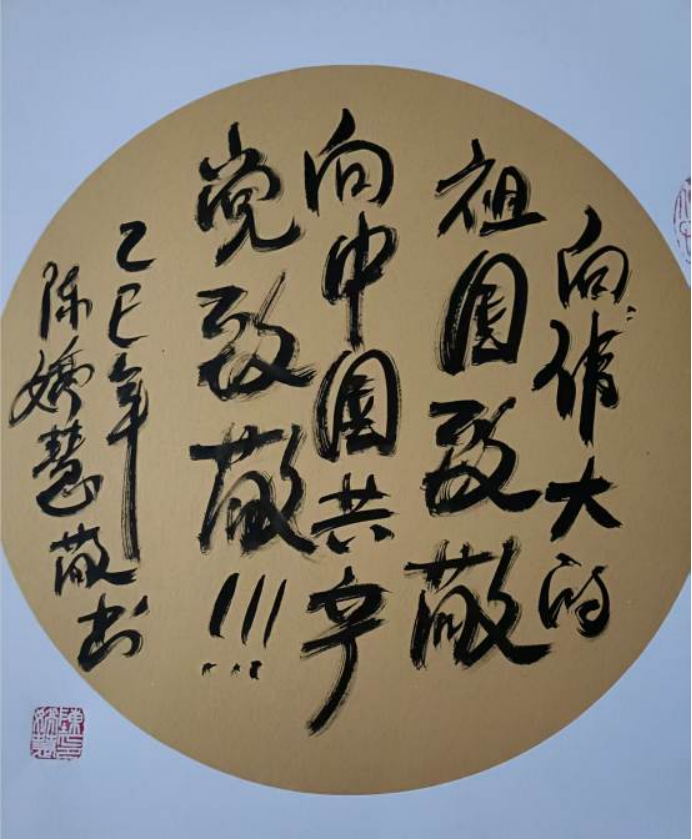 向伟大的
祖国致敬
向中国共产
党致敬!!!
乙巳年
陈娇慧敬书